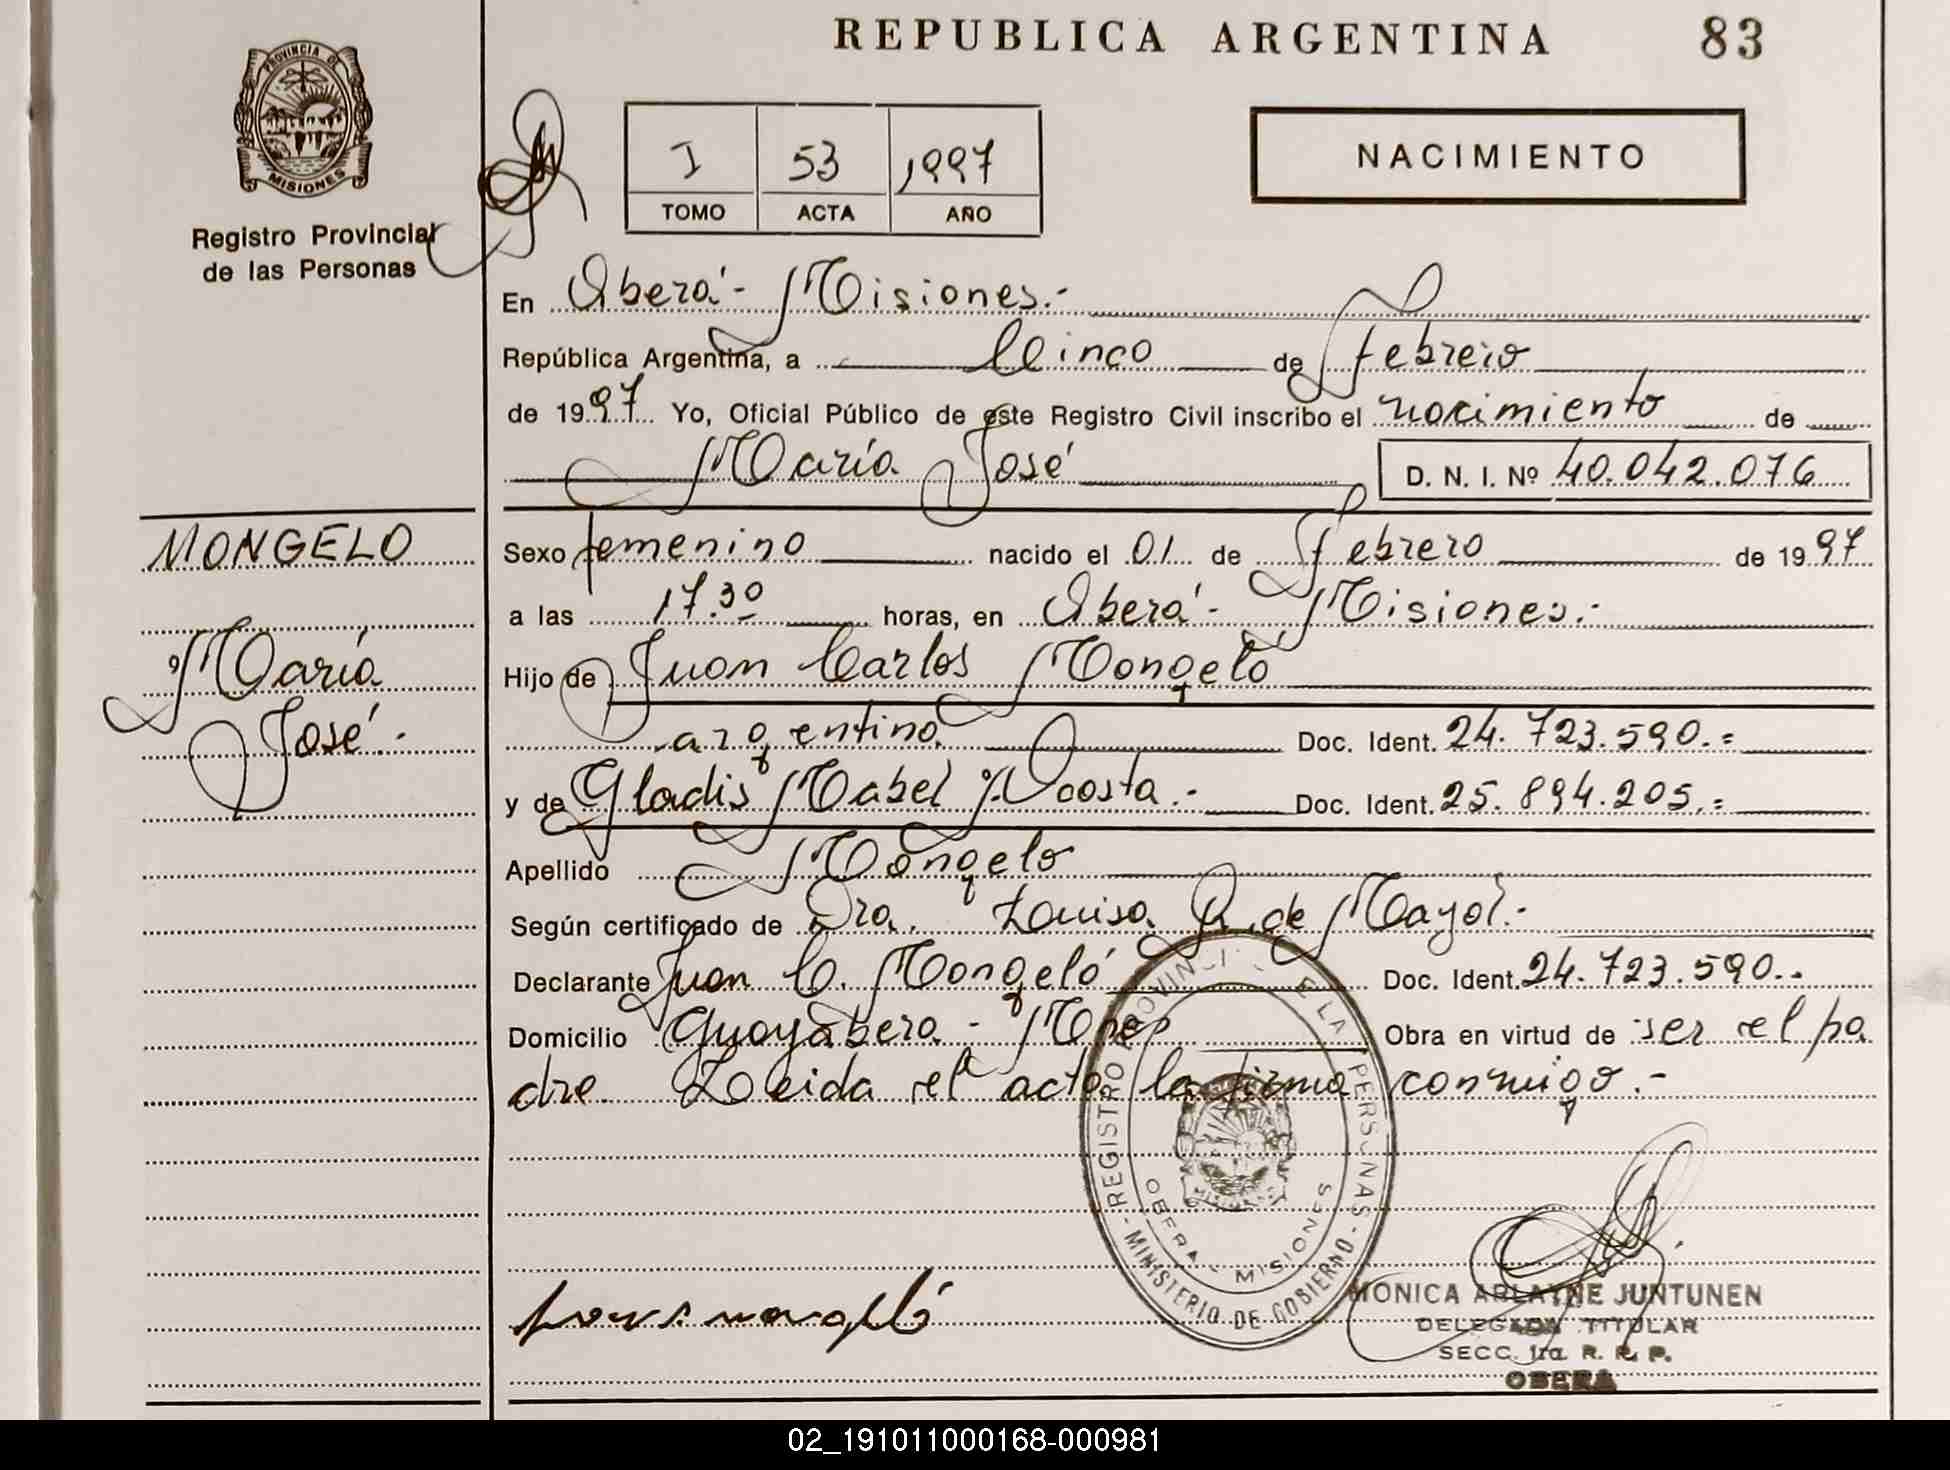 REPUBLICA ARGENTINA 83
PROVINCIA DE
MISIONES
Registro Provincial
de las Personas
I 53 1997
TOMO ACTA AÑO
NACIMIENTO
En Oberá - Misiones.-
República Argentina, a Cinco de febrero
de 1997 Yo, Oficial Público de este Registro Civil inscribo el nacimiento de
María José D. N. I. Nº 40.042.076
MONGELO
María
José.-
Sexo femenino nacido el 01 de febrero de 1997
a las 17.30 horas, en Oberá - Misiones.-
Hijo de Juan Carlos Mongeló
argentino. Doc. Ident. 24.723.590.=
y de Gladis Mabel Acosta.- Doc. Ident. 25.894.205.=
Apellido Mongelo
Según certificado de Dra. Luisa R. de Mayol.-
Declarante Juan C. Mongeló Doc. Ident. 24.723.590..
Domicilio Guayabera - Mnes Obra en virtud de ser el pa
dre. Leida el acta la firma conmigo.-
REGISTRO PROVINCIAL DE LA PERSONAS
- MINISTERIO DE GOBIERNO -
OBERA - MISIONES
MONICA ARLAYNE JUNTUNEN
DELEGADA TITULAR
SECC. 1ra. R. R. P.
OBERA
02_191011000168-000981